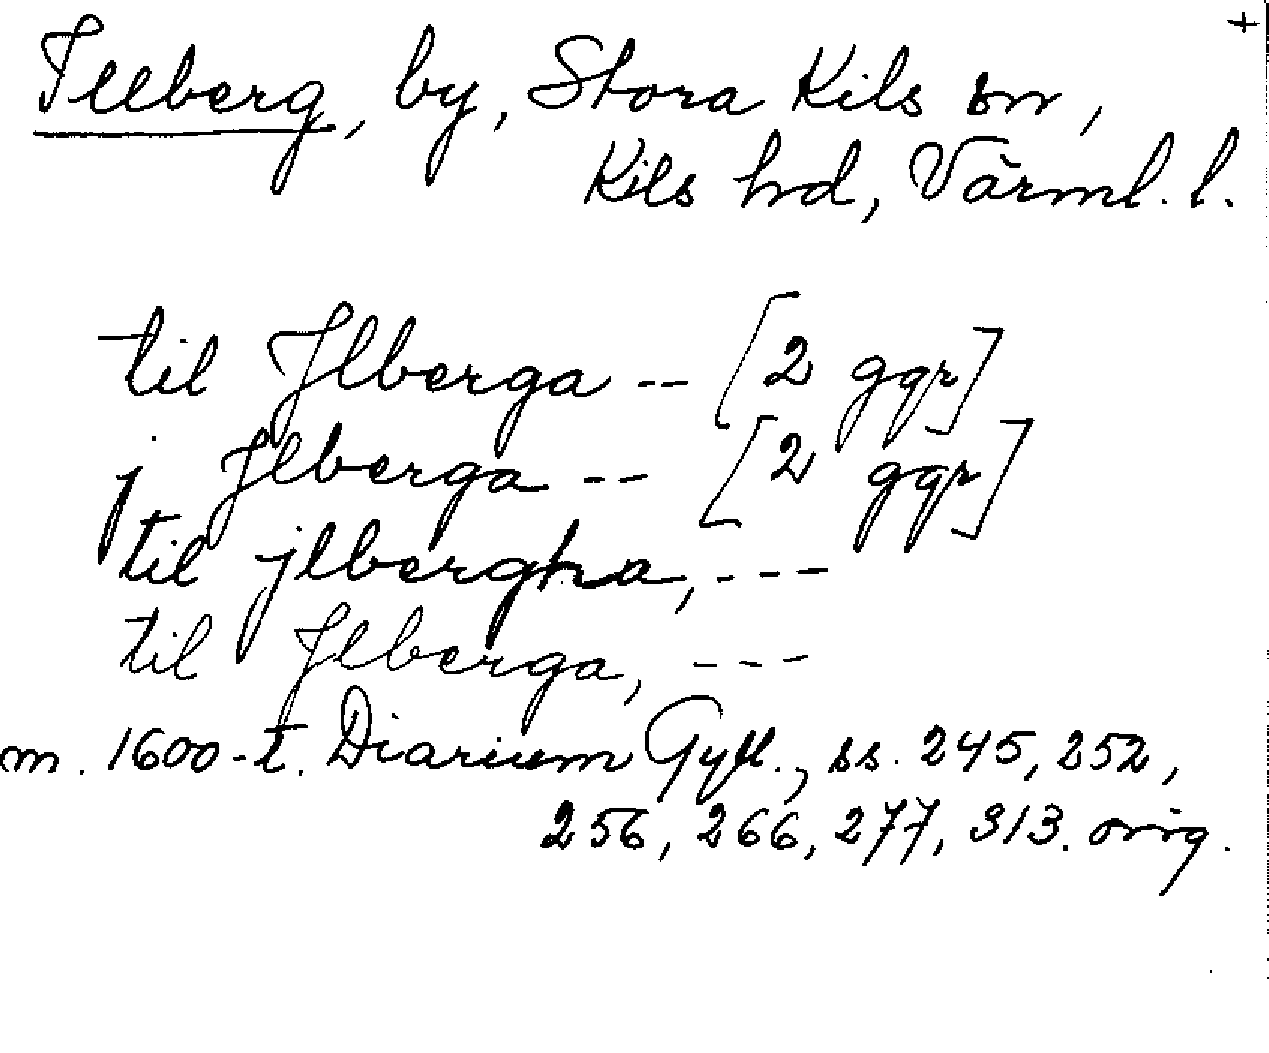 +
Illberg, by, Stora Kils sn,
Kils hd, Värml. l.
til Jlberga -- [2 ggr]
j Jlberga -- [2 ggr]
til jlbergha, ---
til Jlberga, ---
m. 1600-t. Diarium Gyll., ss. 245, 252,
256, 266, 277, 313. orig.